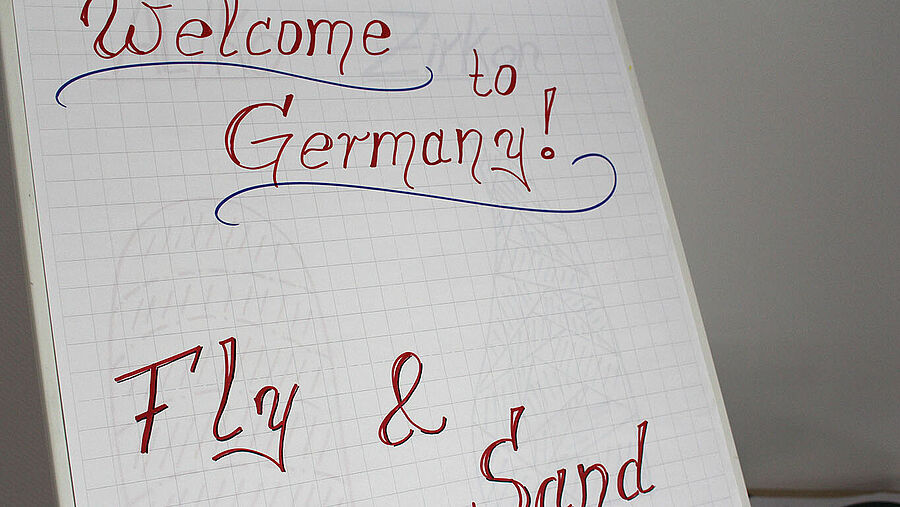 Welcome
to
Germany!
Fly &
Sand